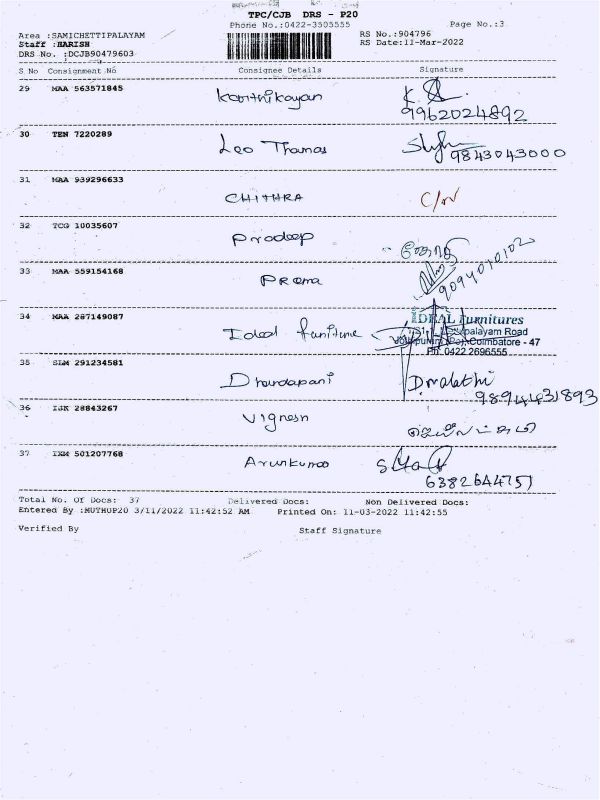 TPC/CJB DRS - P20
Phone No.:0422-3505555
Page No.:3
Area :SAMICHETTIPALAYAM
RS No.:904796
Staff :HARISH
RS Date:11-Mar-2022
DRS No. :DCJB90479603
S No Consignment No Consignee Details Signature
29 MAA 563571845 Karthikayan
9962024892
30 TEN 7220289 Leo Thomas
9843043000
31 MAA 939296633 CHITHRA
32 TCG 10035607 Pradeep
33 MAA 559154168 Prema
9094010102
34 MAA 287149087 Ideal furniture
IDEAL Furnitures
palayam Road
Coimbatore - 47
Ph: 0422 2696555
35 SLM 291234581 Dhandapani D.malathi
9894431893
36 ISK 28843267 Vignesh
37 IXM 501207768 Arunkumar
6382644757
Total No. Of Docs: 37 Delivered Docs: Non Delivered Docs:
Entered By :MUTHUP20 3/11/2022 11:42:52 AM Printed On: 11-03-2022 11:42:55
Verified By Staff Signature